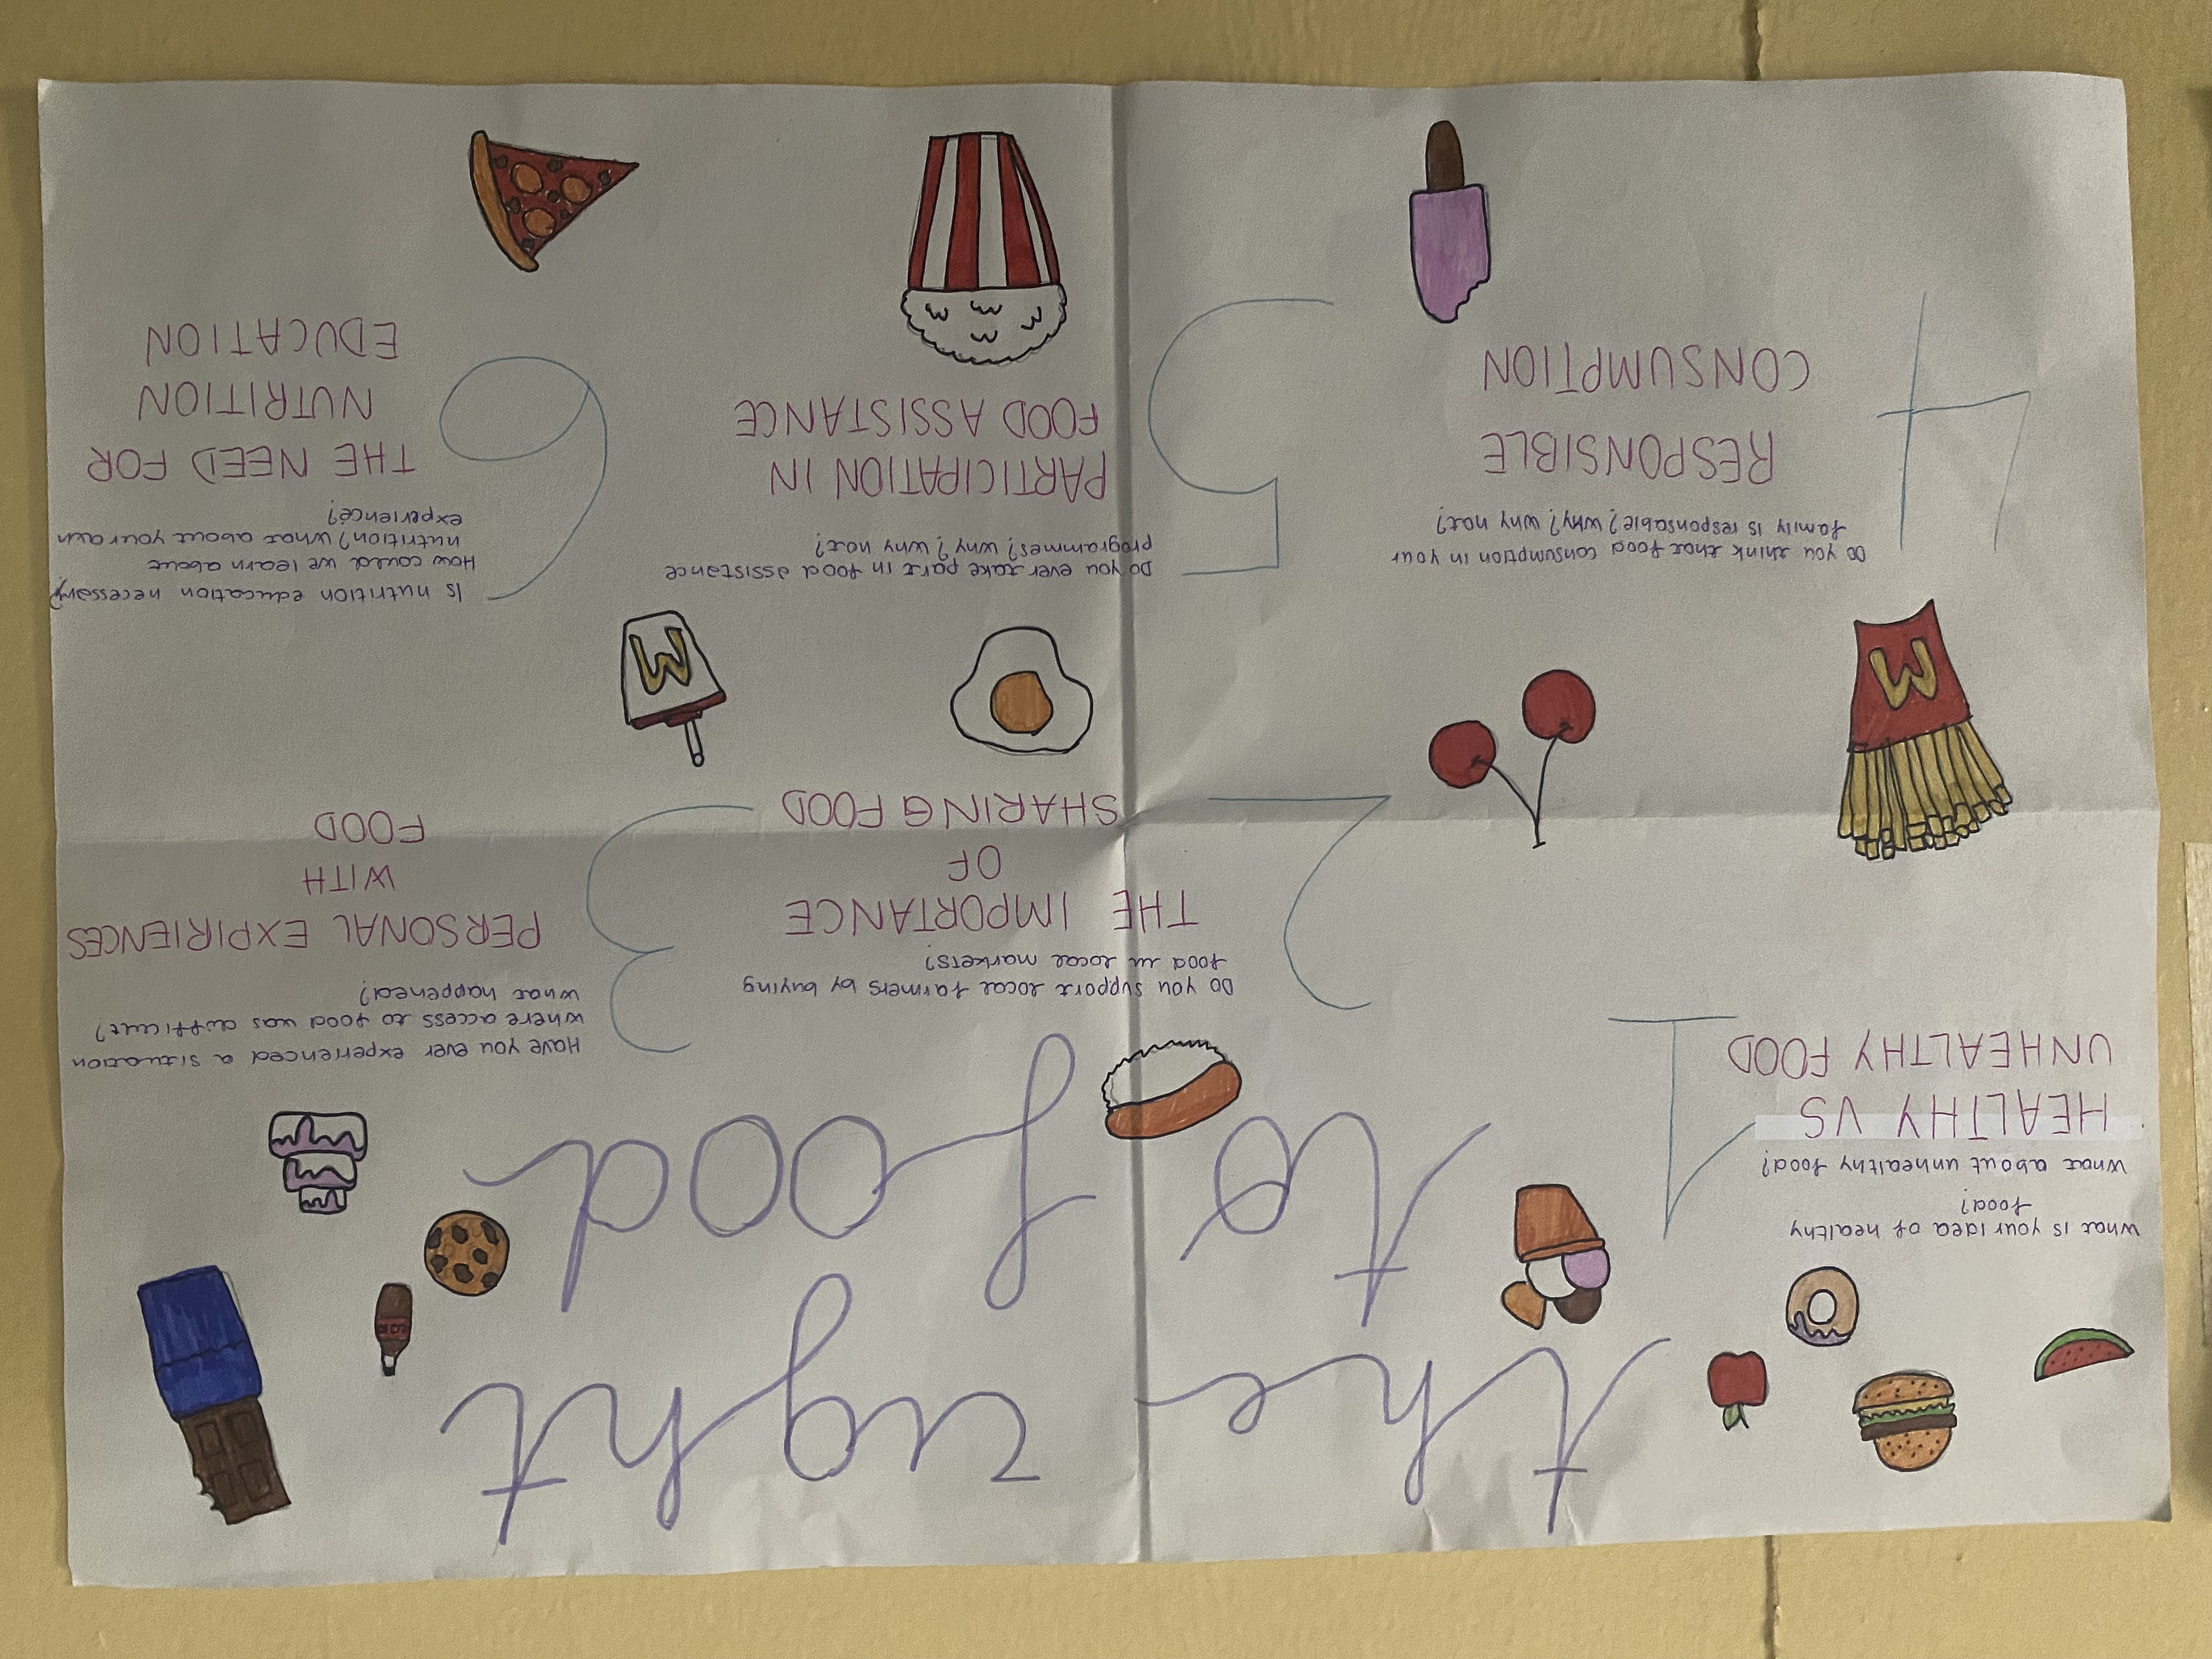 the right
to food
What is your idea of healthy
food?
What about unhealthy food?
HEALTHY VS
UNHEALTHY FOOD
1
Do you support local farmers by buying
food in local markets?
THE IMPORTANCE
OF
SHARING FOOD
2
Have you ever experienced a situation
where access to food was difficult?
What happened?
PERSONAL EXPIRIENCES
WITH
FOOD
3
Do you think that food consumption in your
family is responsable? Why? Why not?
RESPONSIBLE
CONSUMPTION
4
Do you ever take part in food assistance
programmes? Why? Why not?
PARTICIPATION IN
FOOD ASSISTANCE
5
Is nutrition education necessary?
How could we learn about
nutrition? What about your own
experience?
THE NEED FOR
NUTRITION
EDUCATION
6